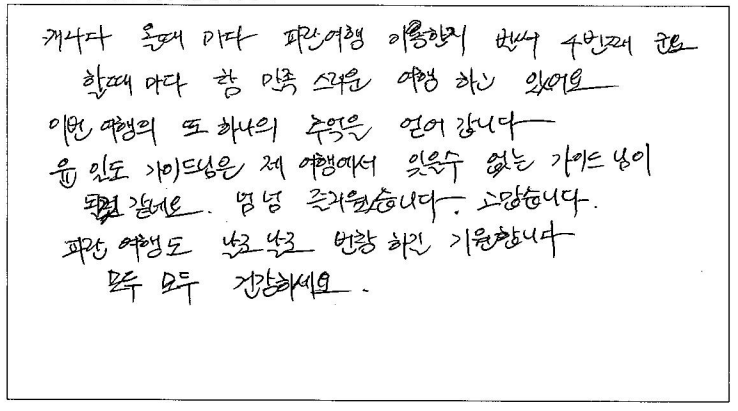 캐나다 올때 마다 파란여행 이용한지 벌써 4번째 군요
할때 마다 참 만족 스러운 여행 하고 있어요
이번 여행의 또 하나의 추억을 얻어 갑니다
윤 일도 가이드님은 제 여행에서 잊을수 없는 가이드 님이
될것 같네요. 넘 넘 즐거웠습니다. 고맙습니다.
파란 여행도 날로 날로 번창 하길 기원합니다
모두 모두 건강하세요.